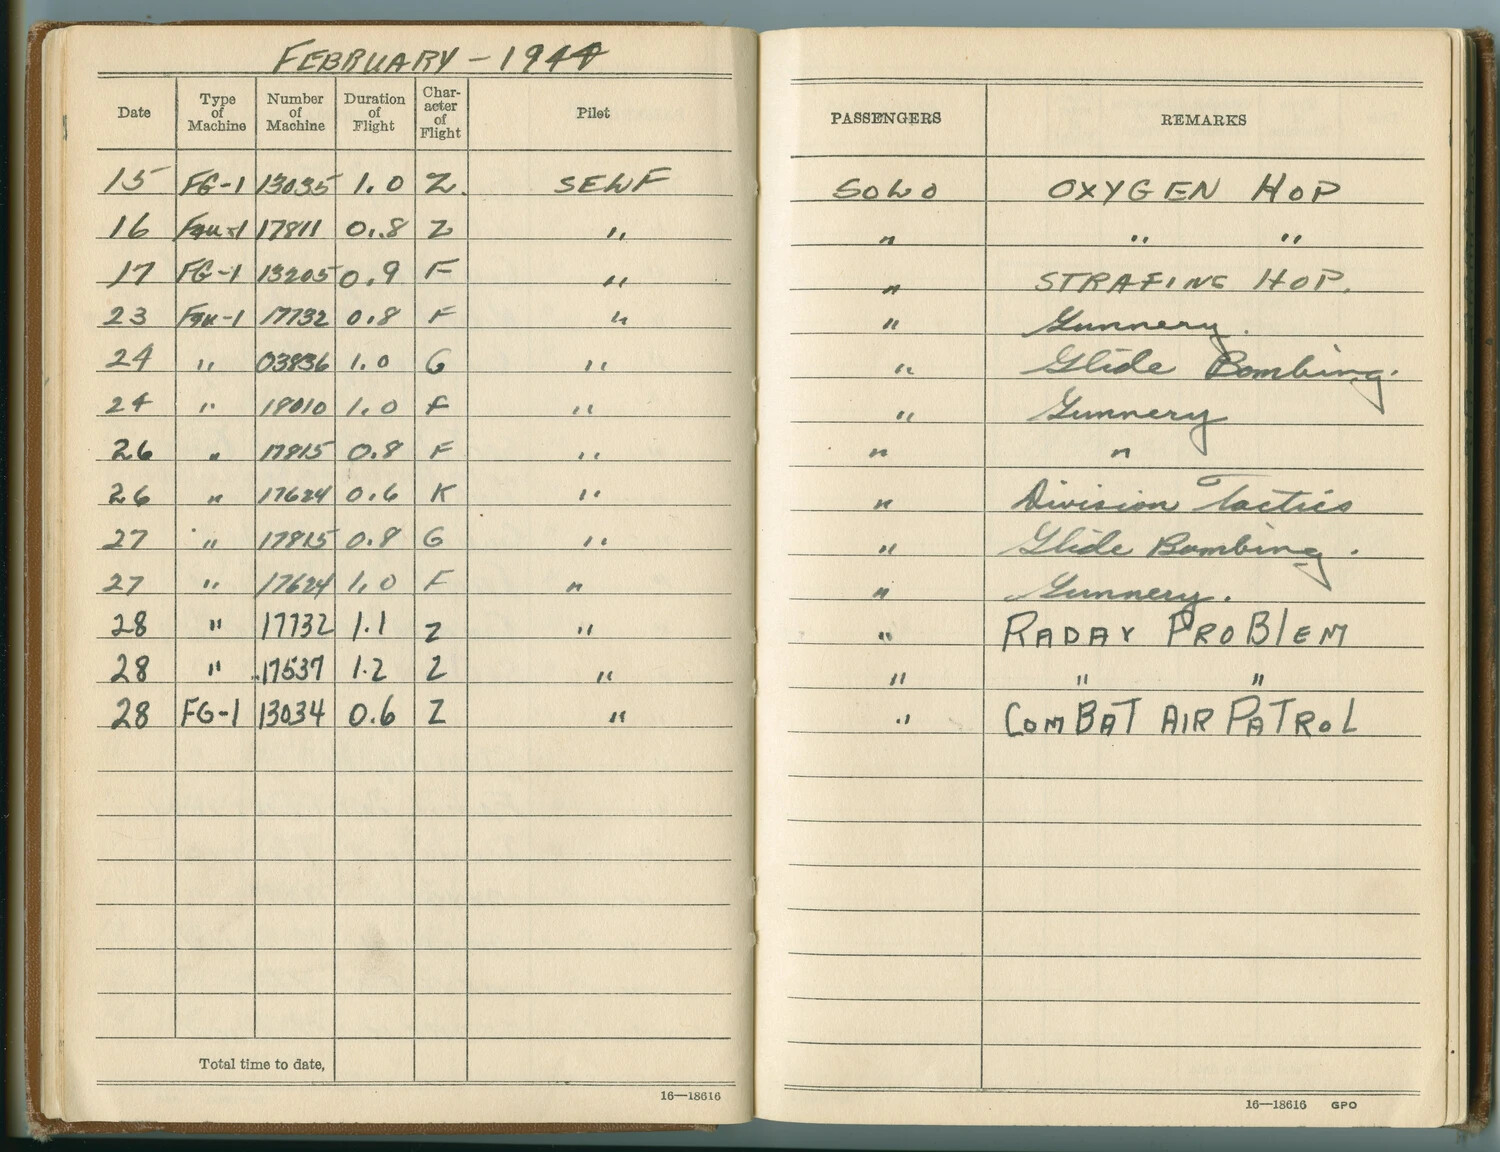 FEBRUARY - 1944
Date Type of Machine Number of Machine Duration of Flight Char- acter of Flight Pilot PASSENGERS REMARKS
15 FG-1 13035 1.0 Z. SELF SOLO OXYGEN HOP
16 F4U-1 17811 0.8 Z " " " "
17 FG-1 13205 0.9 F " " STRAFING HOP.
23 F4U-1 17732 0.8 F " " Gunnery.
24 " 03836 1.0 G " " Glide Bombing.
24 " 18010 1.0 F " " Gunnery
26 " 17815 0.8 F " " "
26 " 17624 0.6 K " " Division Tactics
27 " 17815 0.8 G " " Glide Bombing.
27 " 17624 1.0 F " " Gunnery.
28 " 17732 1.1 Z " " RADAR PROBLEM
28 " 17537 1.2 Z " " " "
28 FG-1 13034 0.6 Z " " COMBAT AIR PATROL
Total time to date,
16—18616 16—18616 GPO